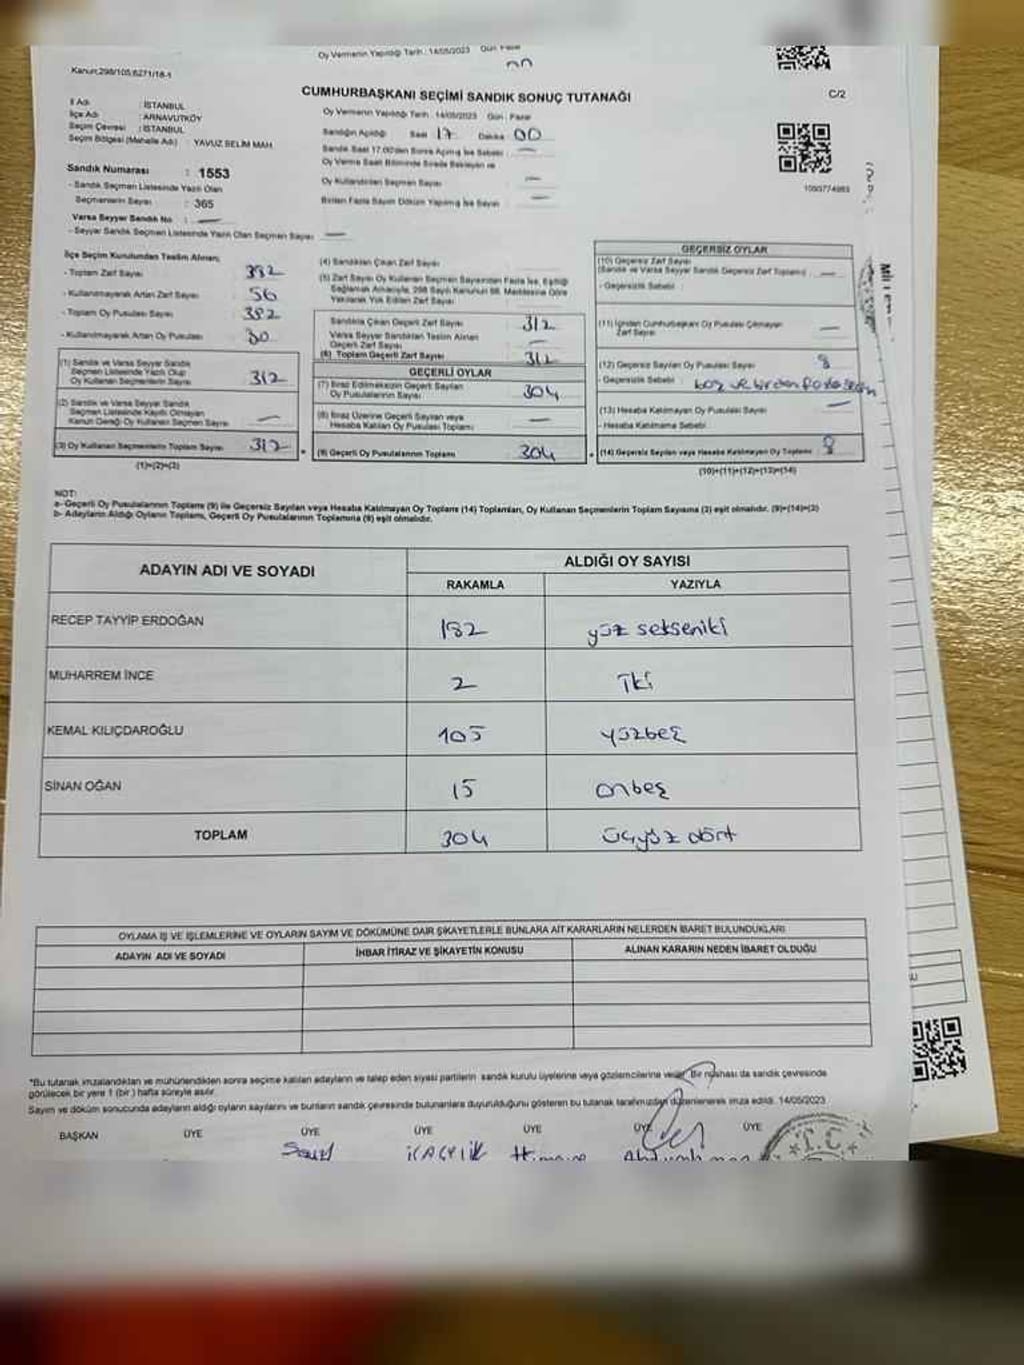 Oy Vermenin Yapıldığı Tarih : 14/05/2023 Gün Pazar
Kanun;298/105;6271/18-1
CUMHURBAŞKANI SEÇİMİ SANDIK SONUÇ TUTANAĞI
C/2
İl Adı : İSTANBUL
İlçe Adı : ARNAVUTKÖY
Seçim Çevresi : İSTANBUL
Seçim Bölgesi (Mahalle Adı) : YAVUZ SELİM MAH.
Oy Vermenin Yapıldığı Tarih : 14/05/2023 Gün : Pazar
Sandığın Açıldığı Saat 17 Dakika 00
Sandık Saat 17.00'den Sonra Açılmış İse Sebebi : —
Oy Verme Saati Bitiminde Sırada Bekleyen ve
Oy Kullandırılan Seçmen Sayısı : —
Birden Fazla Sayım Döküm Yapılmış İse Sayısı : —
1050774983
Sandık Numarası : 1553
- Sandık Seçmen Listesinde Yazılı Olan
Seçmenlerin Sayısı : 365
Varsa Seyyar Sandık No : —
- Seyyar Sandık Seçmen Listesinde Yazılı Olan Seçmen Sayısı : —
İlçe Seçim Kurulundan Teslim Alınan;
- Toplam Zarf Sayısı 382
- Kullanılmayarak Artan Zarf Sayısı : 56
- Toplam Oy Pusulası Sayısı : 382
- Kullanılmayarak Artan Oy Pusulası :
(1) Sandık ve Varsa Seyyar Sandık
Seçmen Listesinde Yazılı Olup
Oy Kullanan Seçmenlerin Sayısı 312
(2) Sandık ve Varsa Seyyar Sandık
Seçmen Listesinde Kayıtlı Olmayan
Kanun Gereği Oy Kullanan Seçmen Sayısı —
(3) Oy Kullanan Seçmenlerin Toplam Sayısı 312
(1)+(2)=(3)
(4) Sandıktan Çıkan Zarf Sayısı
(5) Zarf Sayısı Oy Kullanan Seçmen Sayısından Fazla İse, Eşitliği
Sağlamak Amacıyla, 298 Sayılı Kanunun 98. Maddesine Göre
Yakılarak Yok Edilen Zarf Sayısı
Sandıkta Çıkan Geçerli Zarf Sayısı : 312
Varsa Seyyar Sandıktan Teslim Alınan
Geçerli Zarf Sayısı : —
(6) Toplam Geçerli Zarf Sayısı : 312
GEÇERLİ OYLAR
(7) İtiraz Edilmeksizin Geçerli Sayılan
Oy Pusulalarının Sayısı : 304
(8) İtiraz Üzerine Geçerli Sayılan veya
Hesaba Katılan Oy Pusulası Toplamı : —
(9) Geçerli Oy Pusulalarının Toplamı : 304
GEÇERSİZ OYLAR
(10) Geçersiz Zarf Sayısı
(Sandık ve Varsa Seyyar Sandık Geçersiz Zarf Toplamı) : —
- Geçersizlik Sebebi :
(11) İçinden Cumhurbaşkanı Oy Pusulası Çıkmayan
Zarf Sayısı —
(12) Geçersiz Sayılan Oy Pusulası Sayısı 8
- Geçersizlik Sebebi : boş ve birden fazla
(13) Hesaba Katılmayan Oy Pusulası Sayısı —
- Hesaba Katılmama Sebebi
(14) Geçersiz Sayılan veya Hesaba Katılmayan Oy Toplamı : 8
(10)+(11)+(12)+(13)=(14)
NOT:
a- Geçerli Oy Pusulalarının Toplamı (9) ile Geçersiz Sayılan veya Hesaba Katılmayan Oy Toplamı (14) Toplamları, Oy Kullanan Seçmenlerin Toplam Sayısına (3) eşit olmalıdır. (9)+(14)=(3)
b- Adayların Aldığı Oyların Toplamı, Geçerli Oy Pusulalarının Toplamına (9) eşit olmalıdır.
ADAYIN ADI VE SOYADI
ALDIĞI OY SAYISI
RAKAMLA YAZIYLA
RECEP TAYYİP ERDOĞAN 182 yüz sekseniki
MUHARREM İNCE 2 iki
KEMAL KILIÇDAROĞLU 105 yüzbeş
SİNAN OĞAN 15 onbeş
TOPLAM 304 üçyüz dört
OYLAMA İŞ VE İŞLEMLERİNE VE OYLARIN SAYIM VE DÖKÜMÜNE DAİR ŞİKAYETLERLE BUNLARA AİT KARARLARIN NELERDEN İBARET BULUNDUKLARI
ADAYIN ADI VE SOYADI İHBAR İTİRAZ VE ŞİKAYETİN KONUSU ALINAN KARARIN NEDEN İBARET OLDUĞU
*Bu tutanak imzalandıktan ve mühürlendikten sonra seçime katılan adayların ve talep eden siyasi partilerin sandık kurulu üyelerine veya gözlemcilerine verilir. Bir nüshası da sandık çevresinde
görülecek bir yere 1 (bir) hafta süreyle asılır.
Sayım ve döküm sonucunda adayların aldığı oyların sayılarını ve bunların sandık çevresinde bulunanlara duyurulduğunu gösteren bu tutanak tarafımızdan düzenlenerek imza edildi. 14/05/2023
BAŞKAN ÜYE ÜYE ÜYE ÜYE ÜYE ÜYE
T.C.